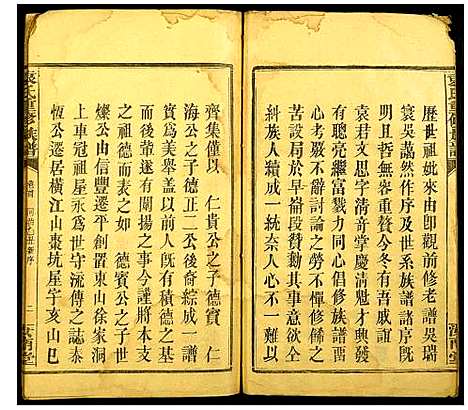 歷世祖妣來由即觀前修老譜吳瑞
寰吳藹然作序及世系族譜諸序既
明且哲無容重贊今冬有吾戚誼
袁君文思字清音堂慶清魁才興發
有聰亮繼富戮力同心倡修族譜
心考嚴不辭討論之勞不憚修飾之
苦設局於早崙段贊勷其事不一難以
本族人續成一統奈人心不
齊集僅以　仁貴公之子德賓　仁
海公之子德正二公後裔綜成一
舉為美舉蓋以有積德之基
而後肇遂有開揚之事今謹將本支
之祖德而表之如　德賓公之子世
燦公由信豐遷平創置東山徐家洞
上車冠祖屋永為世守流傳之誌泰
恆公遷居橫江山棗坑屋宇亥山巳
袁氏重修族譜
汝南堂
袁氏重修族譜
汝南堂